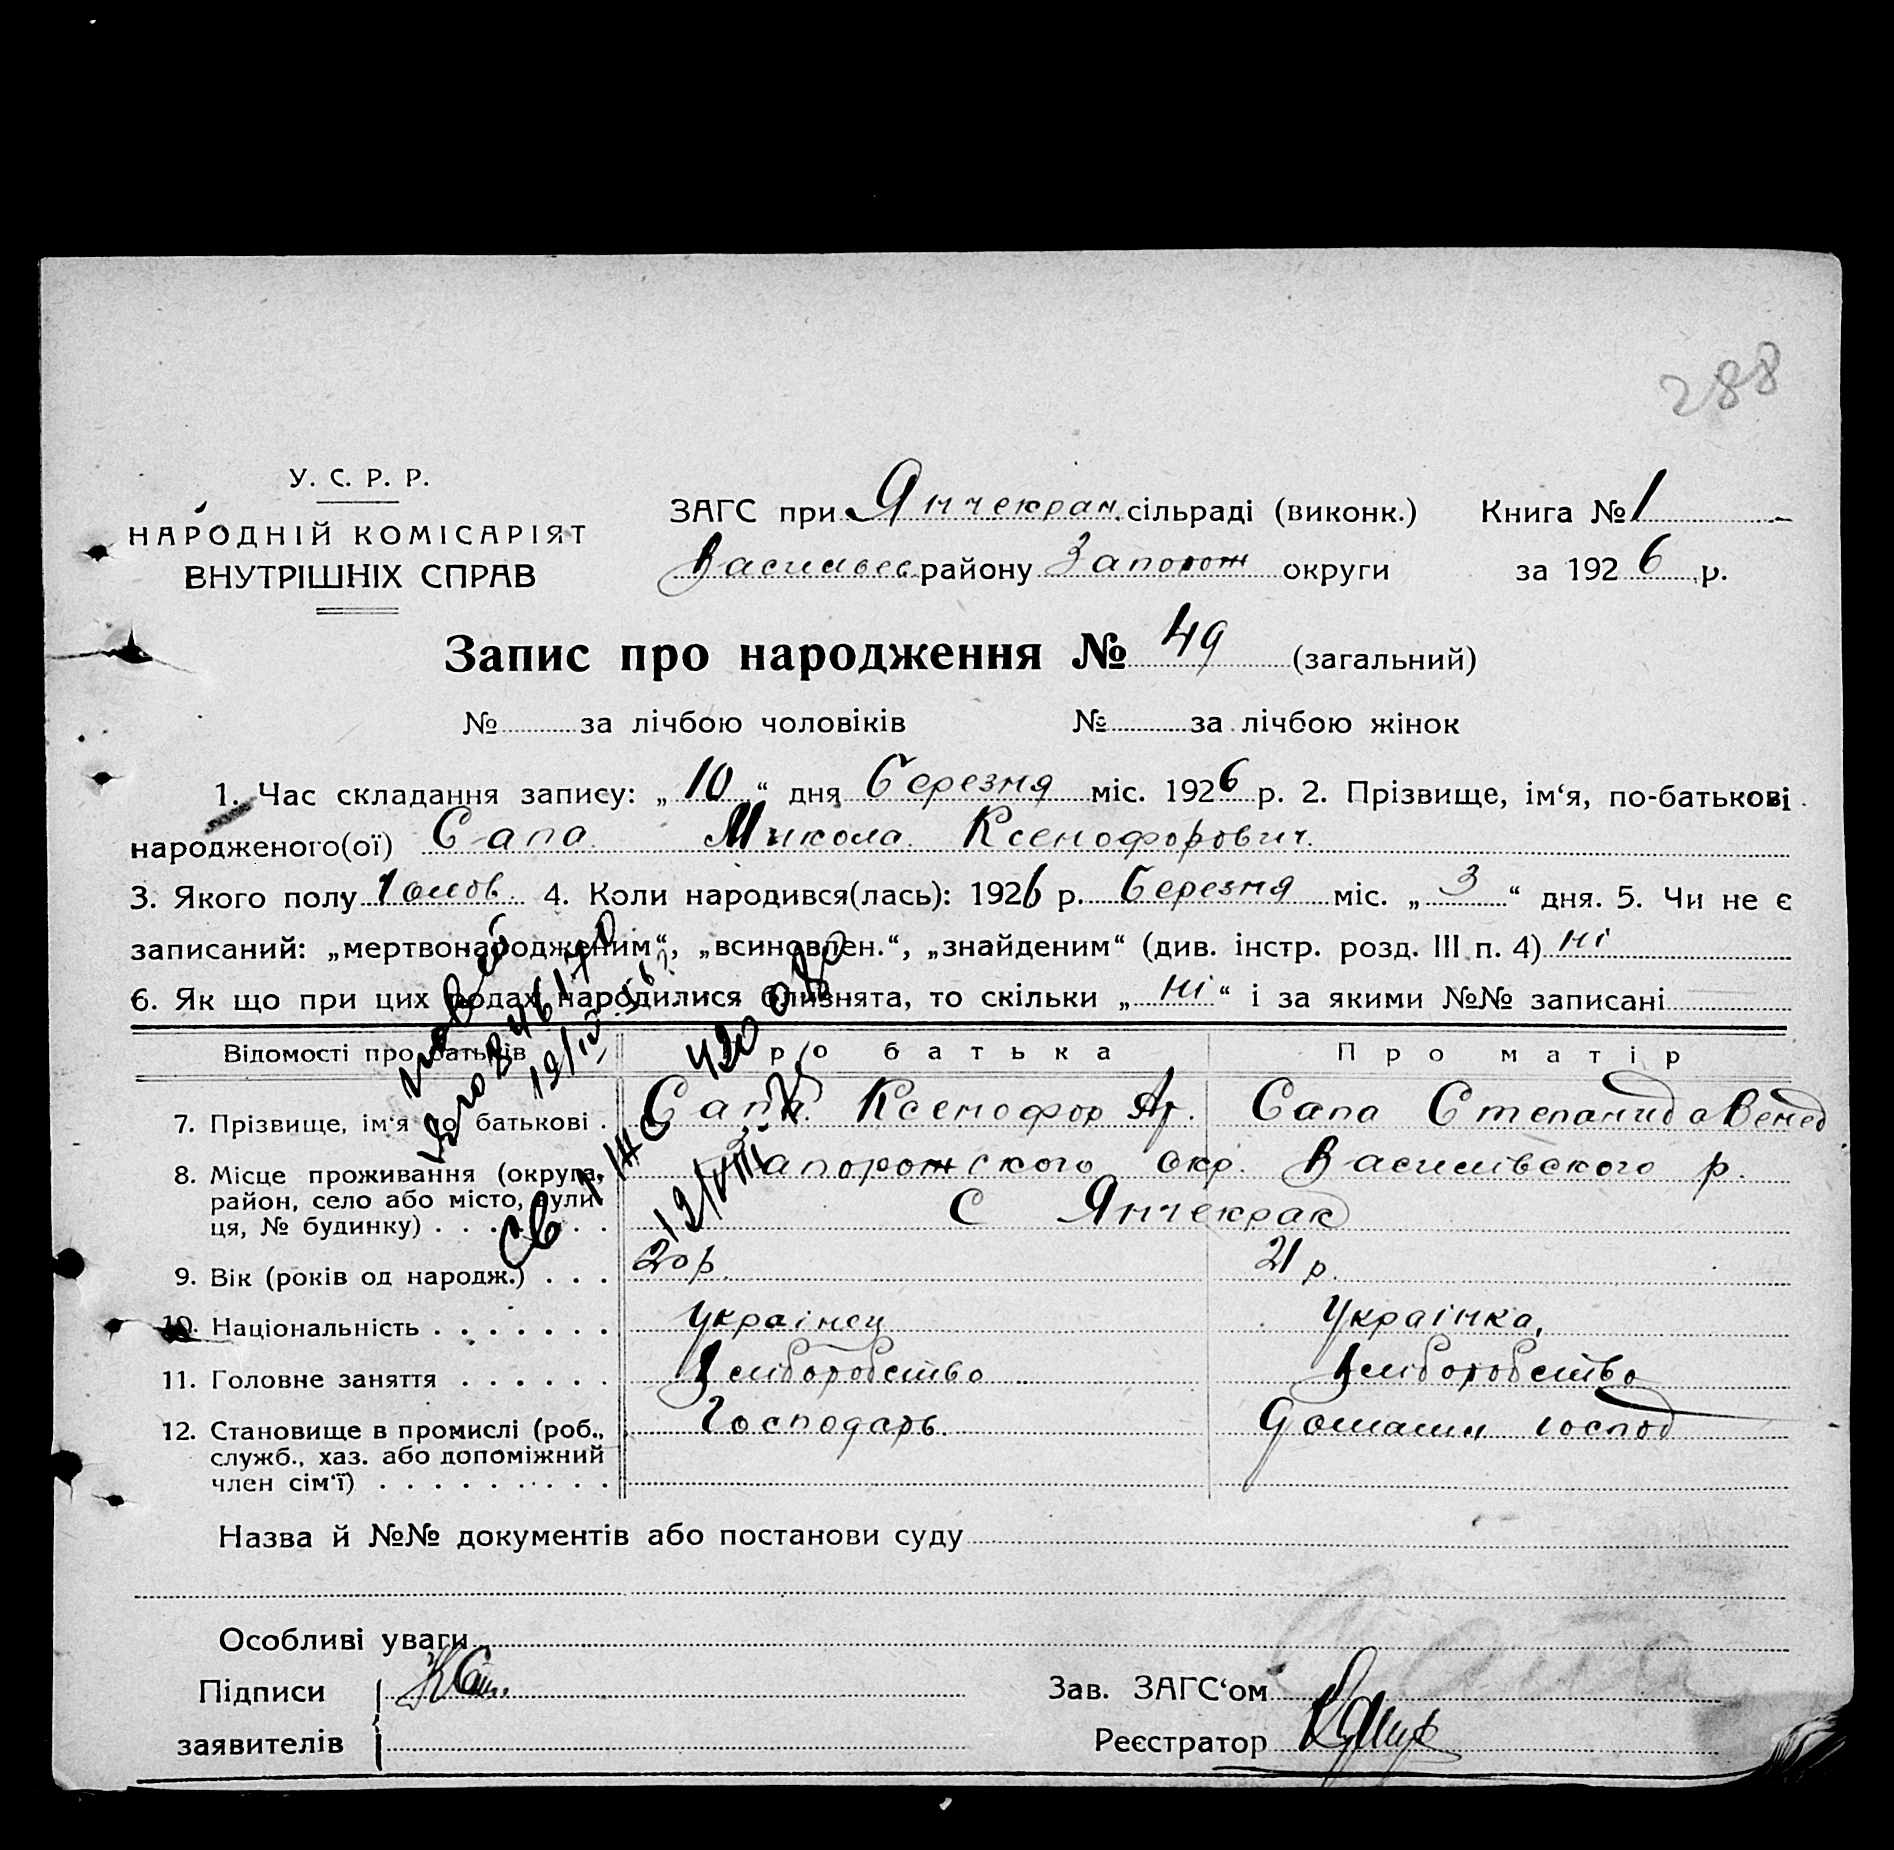 288
У. С. Р. Р.
НАРОДНІЙ КОМІСАРІЯТ
ВНУТРІШНІХ СПРАВ
ЗАГС при Янчекрак сільраді (виконк.) Книга № 1
Васильев району Запорож округи за 1926 р.
Запис про народження № 49 (загальний)
№ за лічбою чоловіків № за лічбою жінок
1. Час складання запису: „10“ дня березня міс. 1926 р. 2. Прізвище, ім‘я, по-батькові
народженого(ої) Сапа Микола Ксенофорович
3. Якого полу чолов. 4. Коли народився(лась): 1926 р. березня міс. „3“ дня. 5. Чи не є
записаний: „мертвонародженим“, „всиновлен.“, „знайденим“ (див. інстр. розд. III п. 4) ні
6. Як що при цих родах народилися близнята, то скільки „ні“ і за якими №№ записані
Відомості про батьків Про батька Про матір
7. Прізвище, ім‘я по батькові . Сапа Ксенофор Ар. Сапа Степанида Венед
8. Місце проживання (округа, район, село або місто, вулиця, № будинку) . . . . . . Запорожского Окр. Василівского р.
с Янчекрак
9. Вік (років од народж.) . . . 20 р. 21 р.
10. Національність . . . . . . . українец Українка,
11. Головне заняття . . . . . . Хліборобство Хліборобство
12. Становище в промислі (роб., Господарь. Домашн господ
служб., хаз. або допоміжний
член сім‘ї) . . . . . . . . .
Назва й №№ документів або постанови суду
Особливі уваги
Підписи Зав. ЗАГС‘ом
заявителів Реєстратор